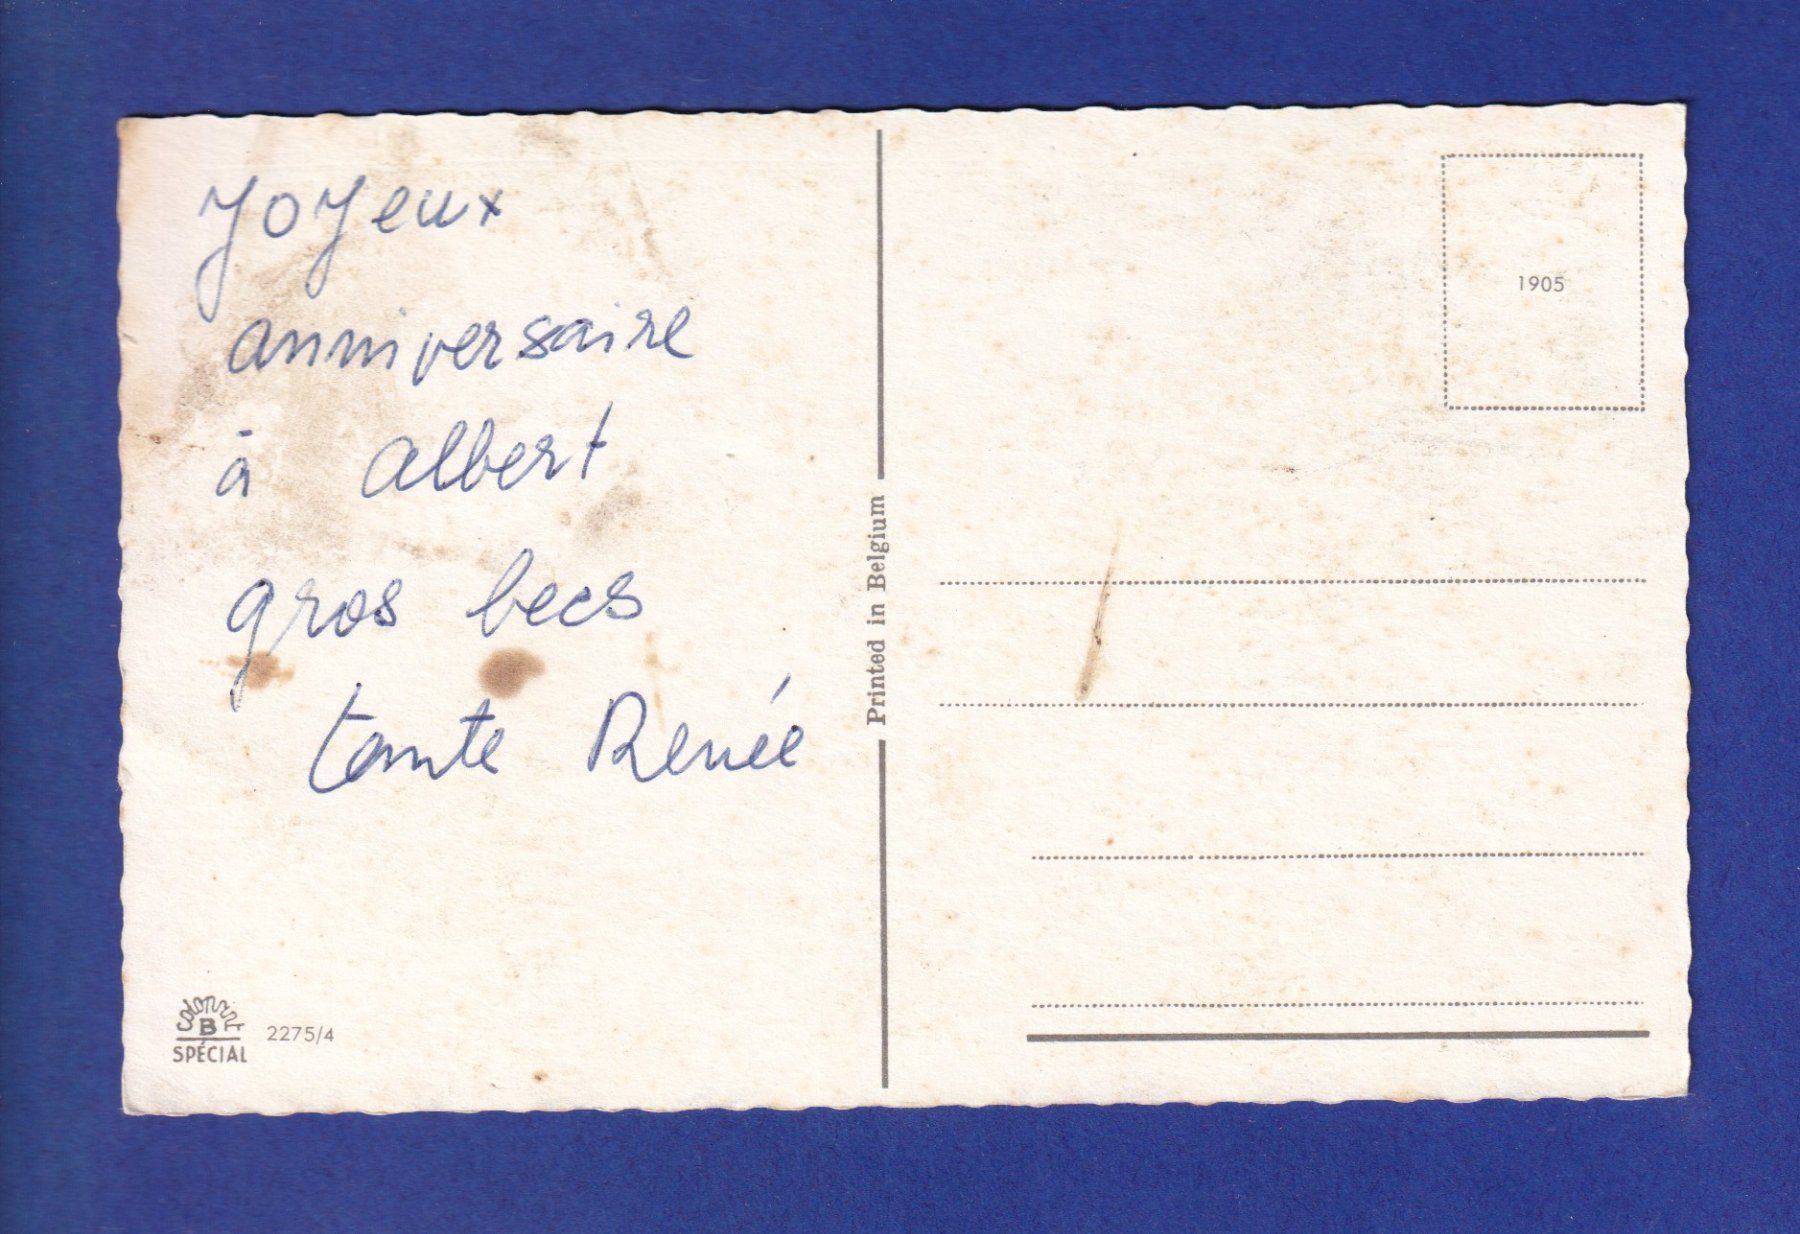 Joyeux
anniversaire
à albert
gros becs
tante Renée
1905
Printed in Belgium
colorprint
B
SPÉCIAL
2275/4